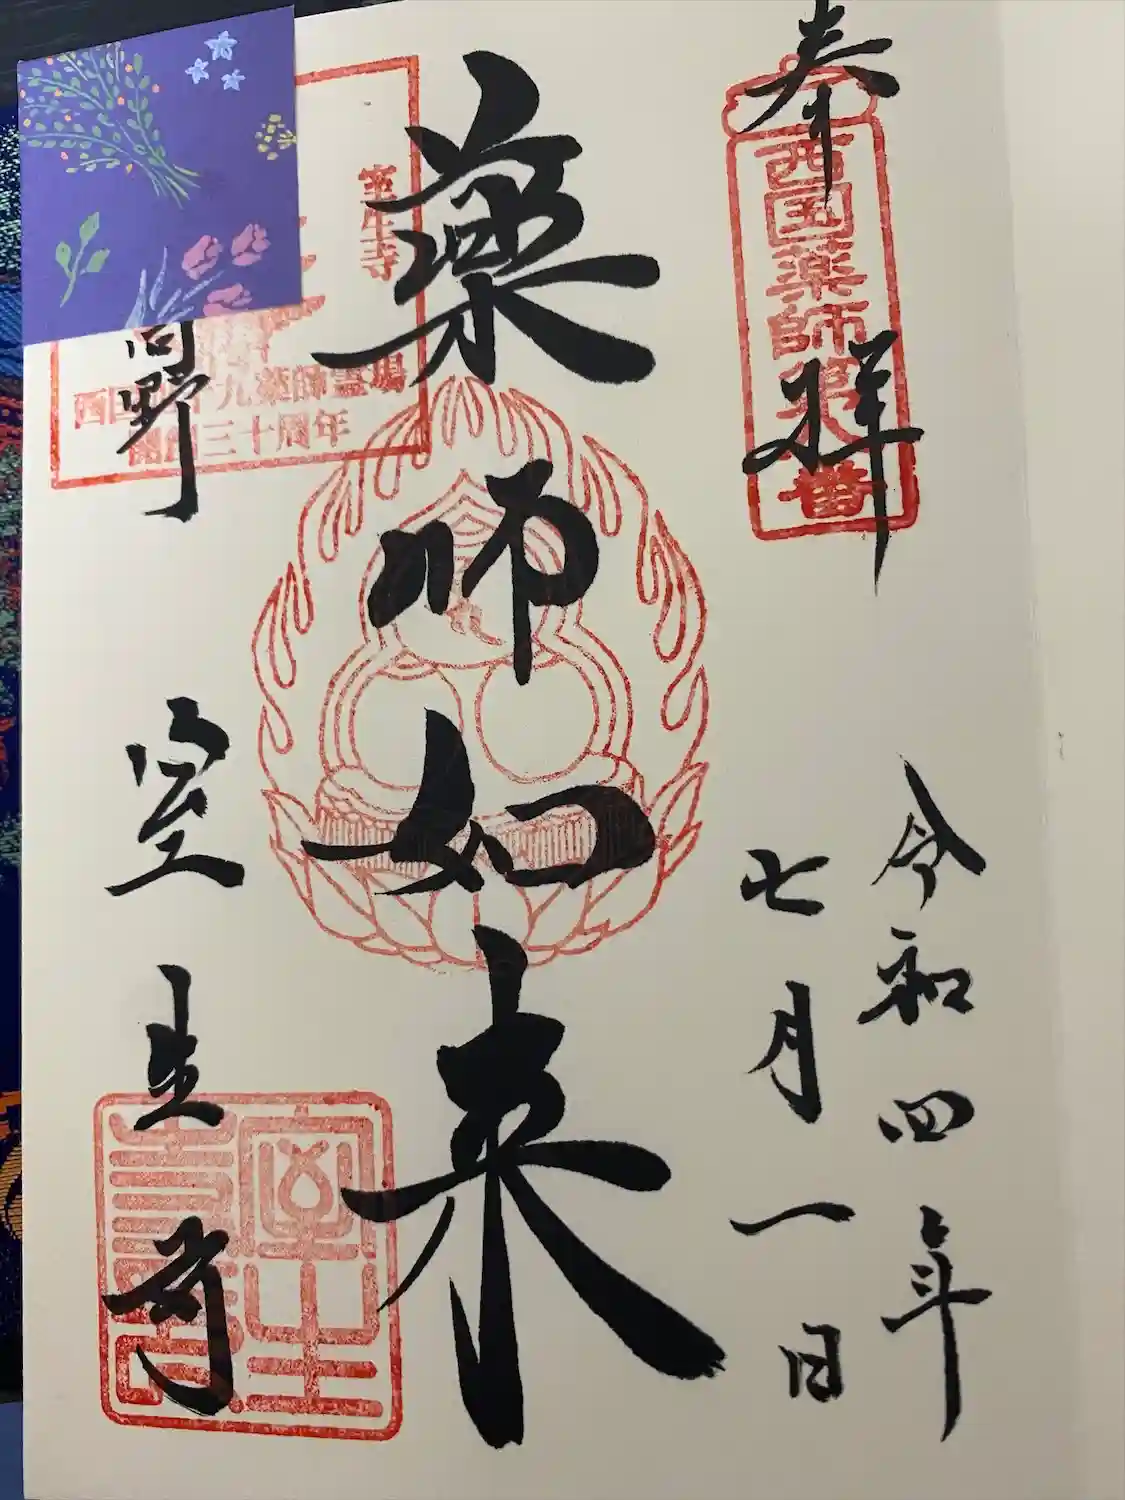 奉拝
西国薬師第八番
令和四年
七月一日
薬師如来
室生寺
西国四十九薬師霊場
開創三十周年
高野
室生寺
室生